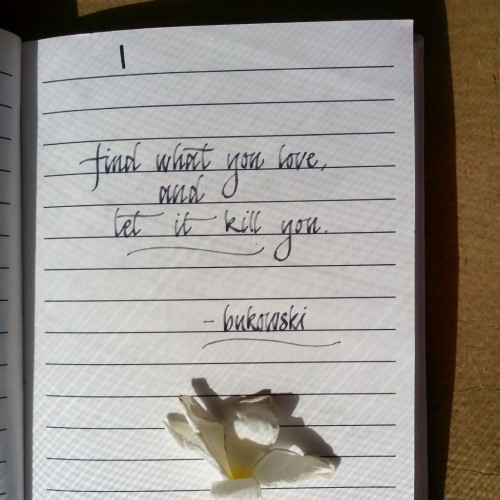 find what you love,
and
let it kill you.
- bukowski